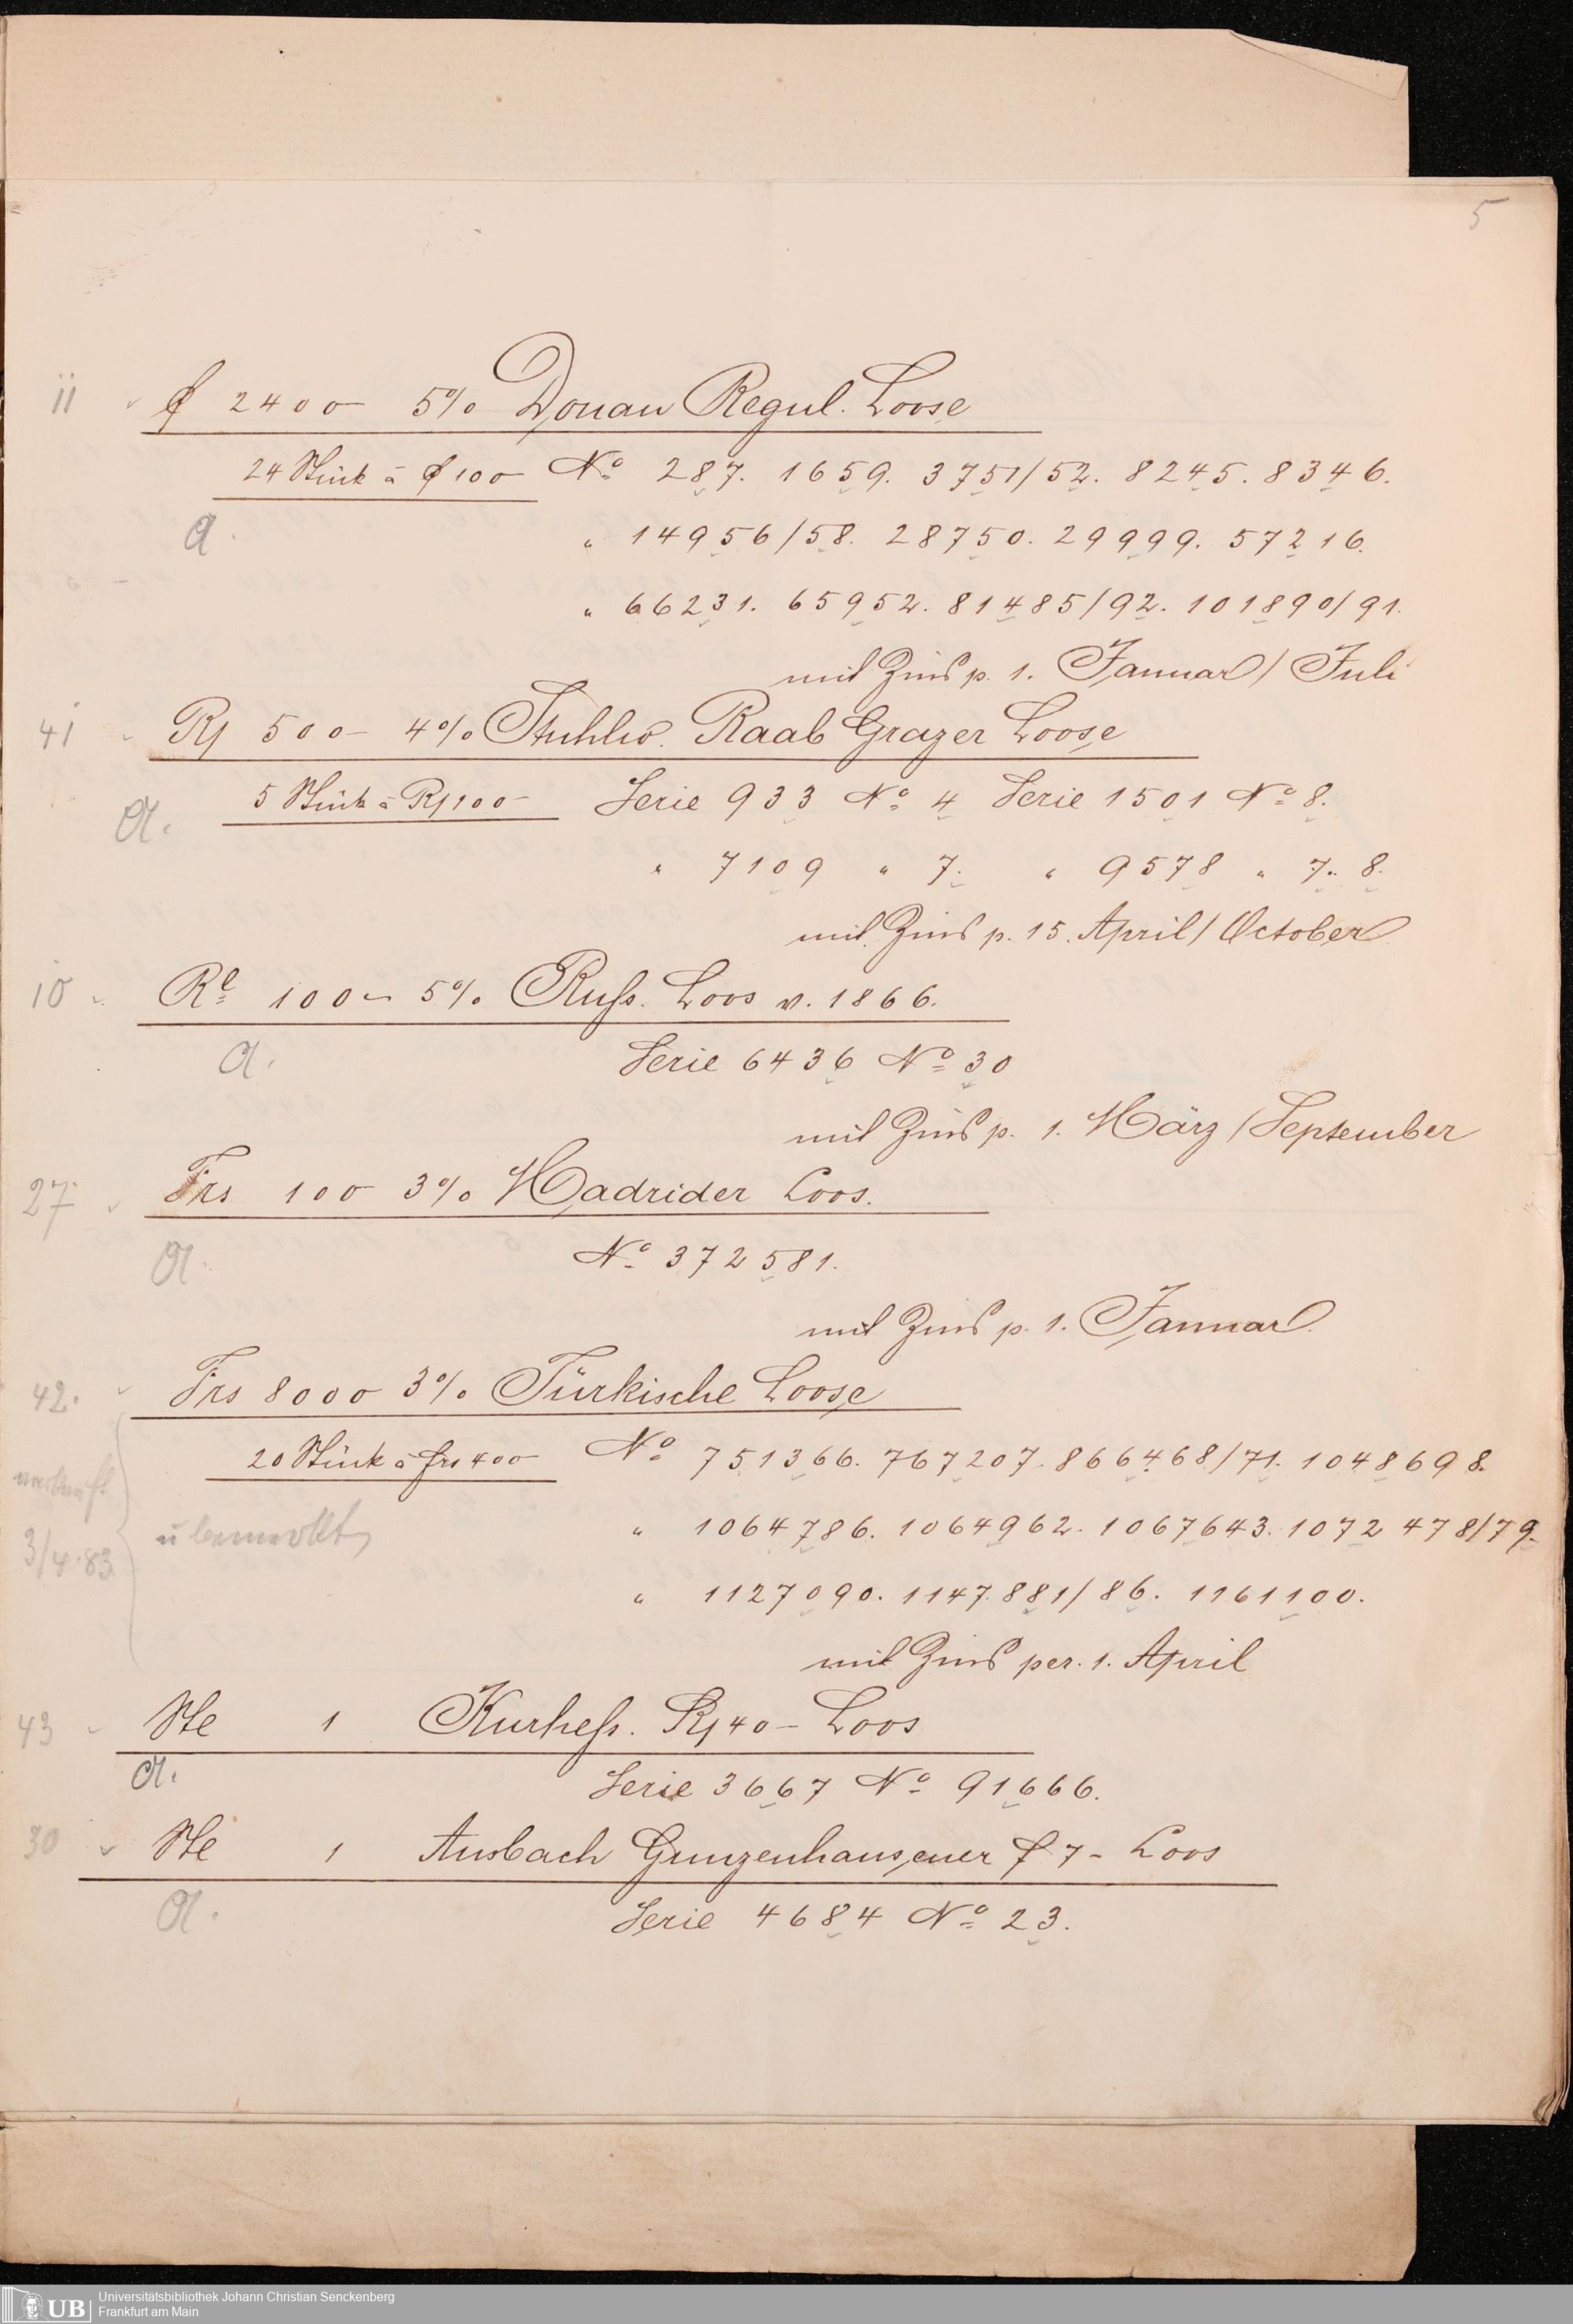 5
11 fl 2400 – 5% Donau Regul. Loose
24 Stück à fl 100 – No 287. 1659. 3751/52. 8245. 8346.
a.
" 14956/58. 28750. 29999. 57216.
" 66231. 65952. 81485/92. 101890/91.
mit Zins p. 1. Januar / Juli
41 Rf 500 – 4% Stuhlw. Raab Grazer Loose
5 Stück à Rf 100 – Serie 933 No 4 Serie 1501 No 8.
a.
" 7109 " 7. " 9578 " 7. 8.
mit Zins p. 15. April / October
10 Rl 100 – 5% Russ. Loos v. 1866.
a. Serie 6436 No 30
mit Zins p. 1. März / September
27 Frs 100 3% Madrider Loos.
a. No 372581.
mit Zins p. 1. Januar
42. Frs 8000 3% Türkische Loose
20 Stück à frs 400 – No 751366. 767207. 866468/71. 1048698.
verkauft
3/4.83
" 1064786. 1064962. 1067643. 1072478/79.
" 1127090. 1147.881/86. 1161100.
mit Zins per. 1. April
43 Ste 1 Kurhess. Rf 40 – Loos
a. Serie 3667 No 91666.
30 Ste 1 Ansbach Gunzenhausener f 7 – Loos
a. Serie 4684 No 23.
UB
Universitätsbibliothek Johann Christian Senckenberg
Frankfurt am Main